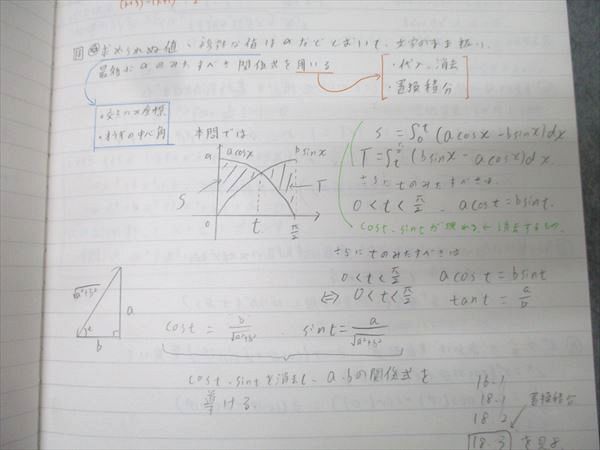 求められぬ値、複雑な値はαなどとおいて、文字のまま扱い、
最後にαのみたすべき関係式を用いる
・代入、消去
・置換積分
・交点のx座標
・おうぎの中心角
本問では
a
acosx
bsinx
S
T
0
t
π/2
S = ∫₀ᵗ (acosx - bsinx)dx
T = ∫ₜ^{π/2} (bsinx - acosx)dx.
さらにtのみたすべき
0 < t < π/2 . acost = bsint.
cost.sintが
さらにtのみたすべきは
0 < t < π/2 acost = bsint
⇔ 0 < t < π/2 tant = a/b
√a²+b²
a
t
b
cost = b/√a²+b² . sint = a/√a²+b²
cost.sintを消去し、a.bの関係式を
導ける
16-1
18-1
18-2
18-3 を見よ
置換積分